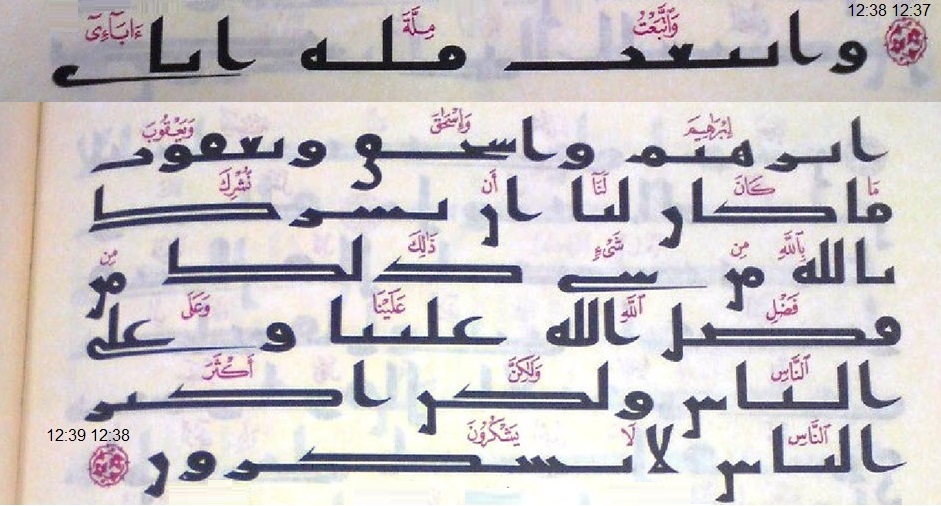 12:38 12:37
وَٱتَّبَعْتُ مِلَّةَ ءَابَآءِىٓ
واتبعت مله اباى
إِبْرَٰهِيمَ وَإِسْحَٰقَ وَيَعْقُوبَ
ابرهيم واسحق ويعقوب
مَا كَانَ لَنَآ أَن نُّشْرِكَ
ما كان لنا ان نشرك
بِٱللَّهِ مِن شَىْءٍ ذَٰلِكَ مِن
بالله من شى ذلك من
فَضْلِ ٱللَّهِ عَلَيْنَا وَعَلَى
فضل الله علينا وعلى
ٱلنَّاسِ وَلَٰكِنَّ أَكْثَرَ
الناس ولكن اكثر
12:39 12:38
ٱلنَّاسِ لَا يَشْكُرُونَ
الناس لا يشكرون